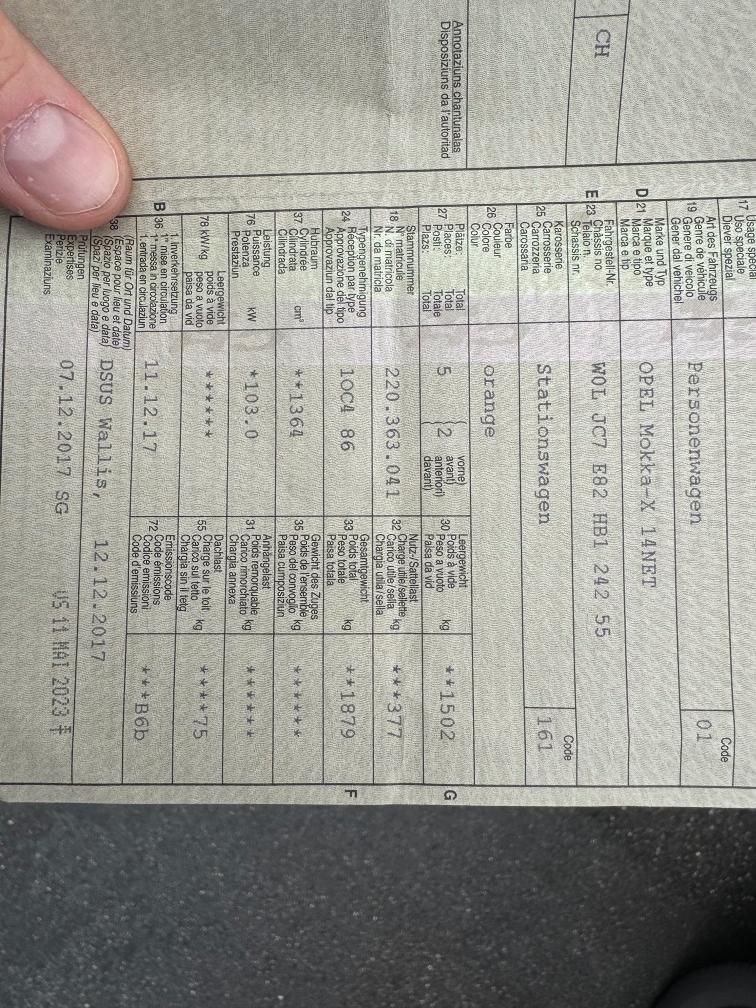 CH
Annotaziuns chantunalas
Disposiziuns da l'autoritad
17 Usage spécial
Uso speciale
Diever spezial
Art des Fahrzeugs
19 Genre de véhicule
Genere di veicolo
Gener dal vehichel
Personenwagen
Code
01
D 21 Marke und Typ
Marque et type
Marca e tipo
Marca e tip
OPEL Mokka-X 14NET
E 23 Fahrgestell-Nr.
Châssis no
Telaio n.
Schassis nr.
W0L JC7 E82 HB1 242 55
Karosserie
25 Carrosserie
Carrozzeria
Carossaria
Stationswagen
Code
161
Farbe
26 Couleur
Colore
Colur
orange
Plätze: Total
27 Places: Total
Posti: Totale
Plazs: Total
5
2
vorne)
avant)
anteriori)
davant)
Leergewicht
30 Poids à vide
Peso a vuoto kg
Paisa da vid
**1502
G
Stammnummer
18 N° matricule
N. di matricola
Nr. da matricla
220.363.041
Nutz-/Sattellast
32 Charge utile/sellette
Carico utile/sella kg
Chargia utila/sella
***377
Typengenehmigung
24 Réception par type
Approvazione del tipo
Approvaziun dal tip
1OC4 86
Gesamtgewicht
33 Poids total
Peso totale kg
Paisa totala
**1879
F
Hubraum
37 Cylindrée
Cilindrata cm³
Cilindrada
**1364
Gewicht des Zuges
35 Poids de l'ensemble
Peso del convoglio kg
Paisa cumposiziun
******
Leistung
76 Puissance
Potenza kW
Prestaziun
*103.0
Anhängelast
31 Poids remorquable
Carico rimorchiato kg
Chargia annexa
******
78 kW/kg
Leergewicht
poids à vide
peso a vuoto
paisa da vid
******
Dachlast
55 Charge sur le toit
Carico sul tetto kg
Chargia sin il tetg
****75
B 36 1. Inverkehrsetzung
1re mise en circulation
1a messa in circolazione
1. entrada en circulaziun
11.12.17
Emissionscode
72 Code émissions
Codice emissioni
Code d'emissiuns
***B6b
38 (Raum für Ort und Datum)
(Espace pour lieu et date)
(Spazio per luogo e data)
(Spazi per lieu e data)
DSUS Wallis, 12.12.2017
Prüfungen
Expertises
Perizie
Examinaziuns
07.12.2017 SG
VS 11 MAI 2023